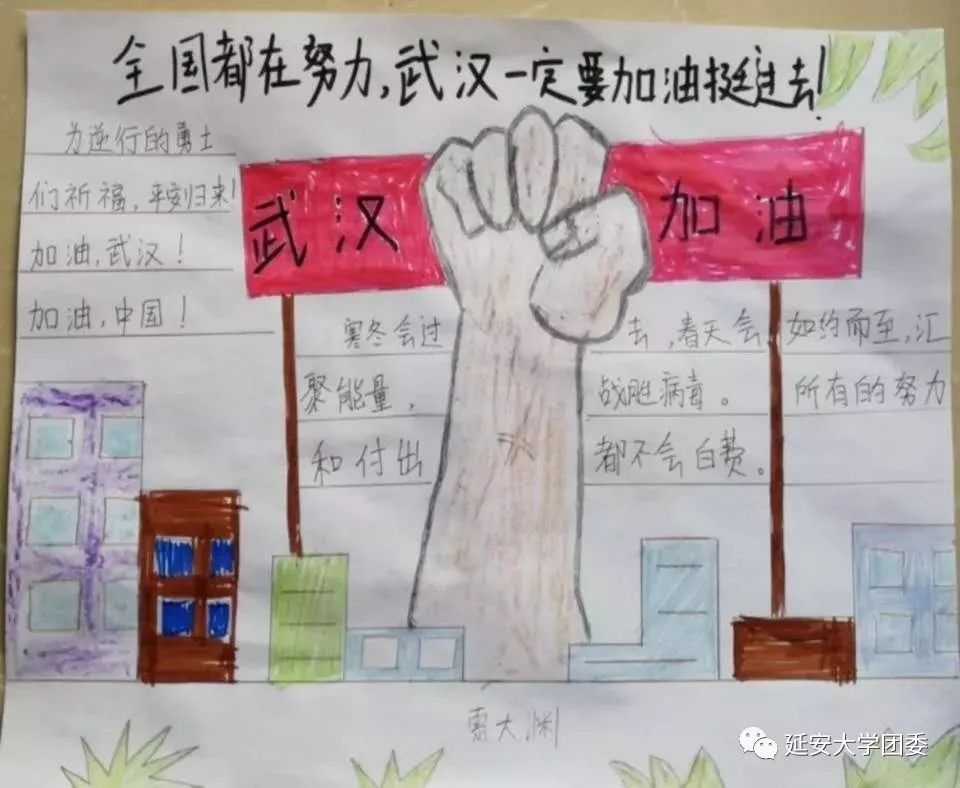 全国都在努力,武汉一定要加油挺过去!
为逆行的勇士
们祈福,平安归来!
加油,武汉!
加油,中国!
武汉 加油
寒冬会过去,春天会如约而至,汇
聚能量,战胜病毒。所有的努力
和付出都不会白费。
延安大学团委